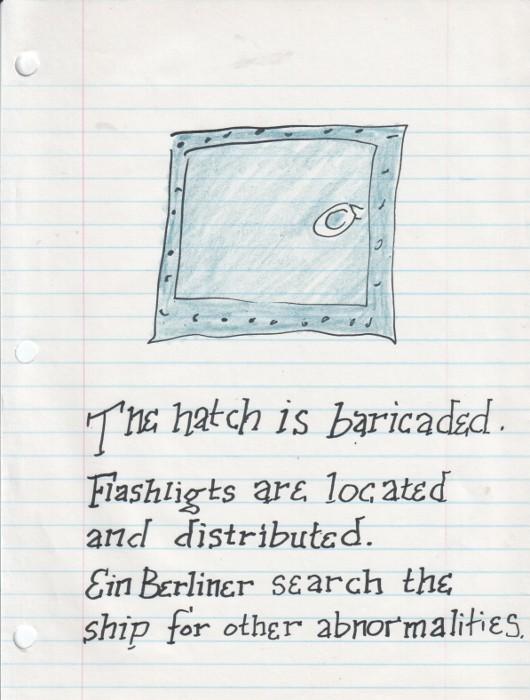 The hatch is baricaded.
Flashligts are located
and distributed.
Ein Berliner search the
ship for other abnormalities.